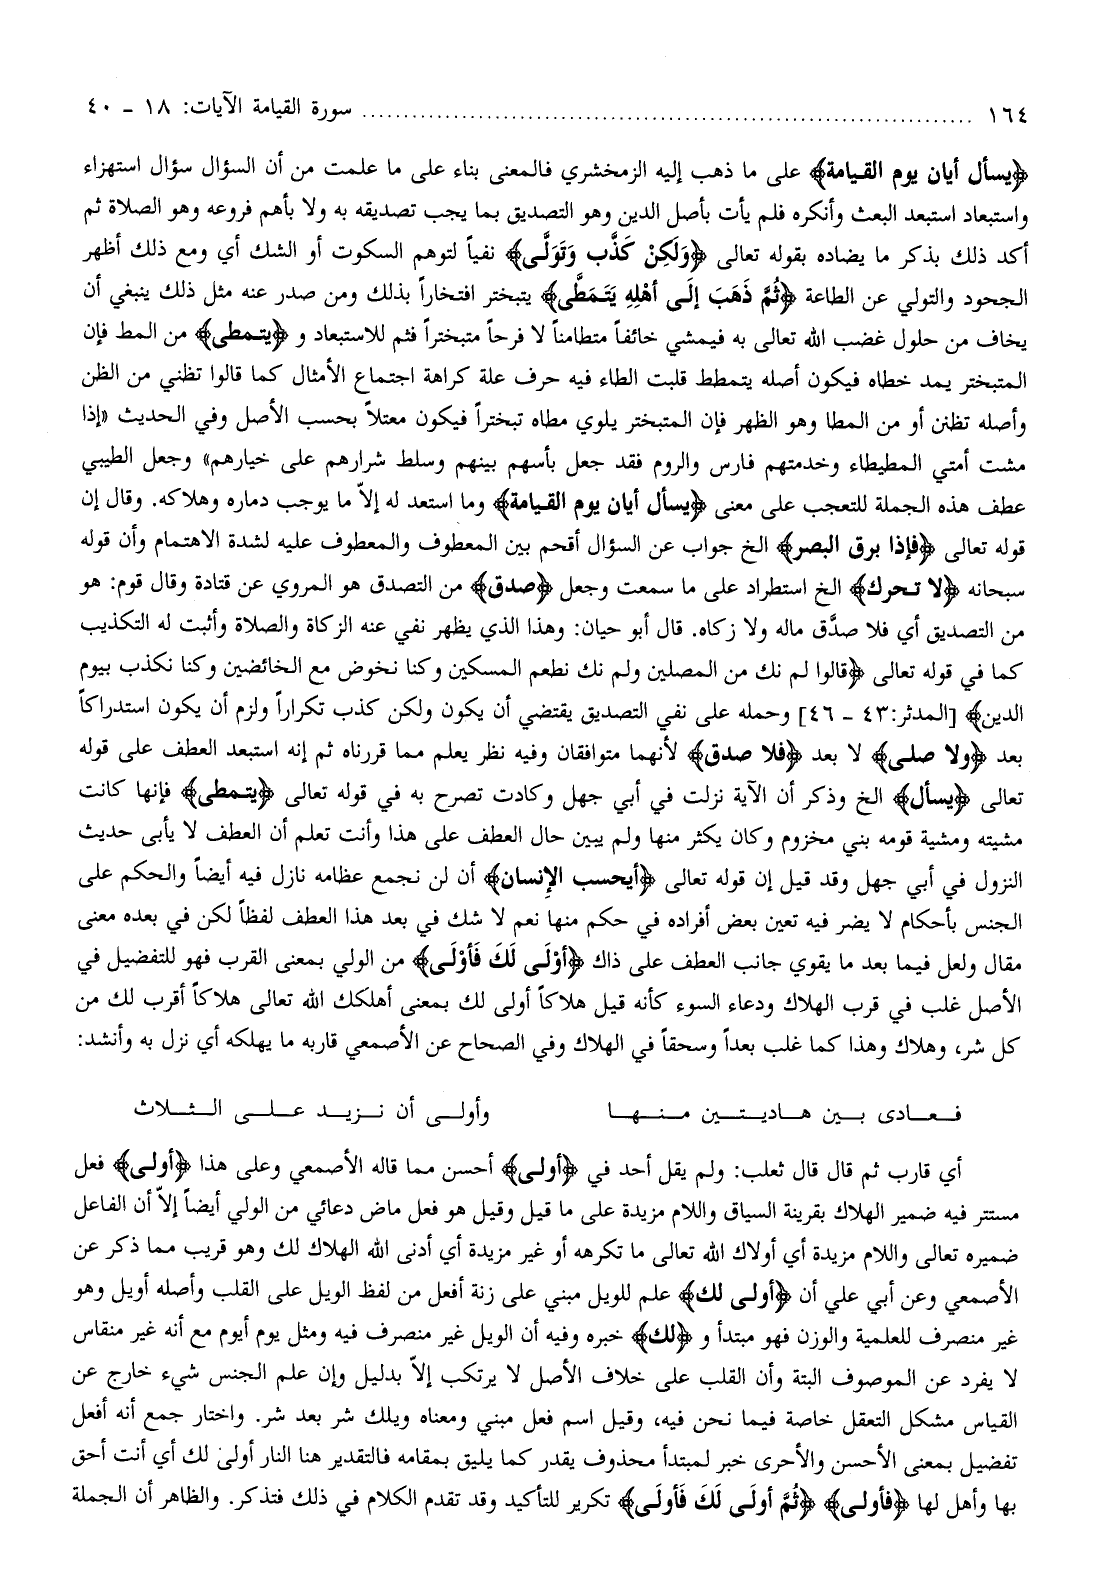 ١٦٤ ........................................................................ سورة القيامة الآيات: ١٨ - ٤٠
﴿يسأل أيان يوم القيامة﴾ على ما ذهب إليه الزمخشري فالمعنى بناء على ما علمت من أن السؤال سؤال استهزاء
واستبعاد استبعد البعث وأنكره فلم يأت بأصل الدين وهو التصديق بما يجب تصديقه به ولا بأهم فروعه وهو الصلاة ثم
أكد ذلك بذكر ما يضاده بقوله تعالى ﴿وَلَكِنْ كَذَّب وَتَوَلَّى﴾ نفياً لتوهم السكوت أو الشك أي ومع ذلك أظهر
الجحود والتولي عن الطاعة ﴿ثُمَّ ذَهَبَ إِلَى أهْلِهِ يَتَمَطَّى﴾ يتبختر افتخاراً بذلك ومن صدر عنه مثل ذلك ينبغي أن
يخاف من حلول غضب الله تعالى به فيمشي خائفاً متطامناً لا فرحاً متبختراً فثم للاستبعاد و ﴿يتمطى﴾ من المط فإن
المتبختر يمد خطاه فيكون أصله يتمطط قلبت الطاء فيه حرف علة كراهة اجتماع الأمثال كما قالوا تظني من الظن
وأصله تظنن أو من المطا وهو الظهر فإن المتبختر يلوي مطاه تبختراً فيكون معتلاً بحسب الأصل وفي الحديث «إذا
مشت أمتي المطيطاء وخدمتهم فارس والروم فقد جعل بأسهم بينهم وسلط شرارهم على خيارهم» وجعل الطيبي
عطف هذه الجملة للتعجب على معنى ﴿يسأل أيان يوم القيامة﴾ وما استعد له إلاّ ما يوجب دماره وهلاكه. وقال إن
قوله تعالى ﴿فإذا برق البصر﴾ الخ جواب عن السؤال أقحم بين المعطوف والمعطوف عليه لشدة الاهتمام وأن قوله
سبحانه ﴿لا تحرك﴾ الخ استطراد على ما سمعت وجعل ﴿صدق﴾ من التصدق هو المروي عن قتادة وقال قوم: هو
من التصديق أي فلا صدَّق ماله ولا زكاه. قال أبو حيان: وهذا الذي يظهر نفي عنه الزكاة والصلاة وأثبت له التكذيب
كما في قوله تعالى ﴿قالوا لم نك من المصلين ولم نك نطعم المسكين وكنا نخوض مع الخائضين وكنا نكذب بيوم
الدين﴾ [المدثر:٤٣ - ٤٦] وحمله على نفي التصديق يقتضي أن يكون ولكن كذب تكراراً ولزم أن يكون استدراكاً
بعد ﴿ولا صلى﴾ لا بعد ﴿فلا صدق﴾ لأنهما متوافقان وفيه نظر يعلم مما قررناه ثم إنه استبعد العطف على قوله
تعالى ﴿يسأل﴾ الخ وذكر أن الآية نزلت في أبي جهل وكادت تصرح به في قوله تعالى ﴿يتمطى﴾ فإنها كانت
مشيته ومشية قومه بني مخزوم وكان يكثر منها ولم يبين حال العطف على هذا وأنت تعلم أن العطف لا يأبى حديث
النزول في أبي جهل وقد قيل إن قوله تعالى ﴿أيحسب الإنسان﴾ أن لن نجمع عظامه نازل فيه أيضاً والحكم على
الجنس بأحكام لا يضر فيه تعين بعض أفراده في حكم منها نعم لا شك في بعد هذا العطف لفظاً لكن في بعده معنى
مقال ولعل فيما بعد ما يقوي جانب العطف على ذاك ﴿أوْلَى لَكَ فَأوْلَى﴾ من الولي بمعنى القرب فهو للتفضيل في
الأصل غلب في قرب الهلاك ودعاء السوء كأنه قيل هلاكاً أولى لك بمعنى أهلكك الله تعالى هلاكاً أقرب لك من
كل شر، وهلاك وهذا كما غلب بعداً وسحقاً في الهلاك وفي الصحاح عن الأصمعي قاربه ما يهلكه أي نزل به وأنشد:
فعادى بين هاديتين منها وأولى أن نزيد على الثلاث
أي قارب ثم قال قال ثعلب: ولم يقل أحد في ﴿أولى﴾ أحسن مما قاله الأصمعي وعلى هذا ﴿أولى﴾ فعل
مستتر فيه ضمير الهلاك بقرينة السياق واللام مزيدة على ما قيل وقيل هو فعل ماض دعائي من الولي أيضاً إلاّ أن الفاعل
ضميره تعالى واللام مزيدة أي أولاك الله تعالى ما تكرهه أو غير مزيدة أي أدنى الله الهلاك لك وهو قريب مما ذكر عن
الأصمعي وعن أبي علي أن ﴿أولى لك﴾ علم للويل مبني على زنة أفعل من لفظ الويل على القلب وأصله أويل وهو
غير منصرف للعلمية والوزن فهو مبتدأ و ﴿لك﴾ خبره وفيه أن الويل غير منصرف فيه ومثل يوم أيوم مع أنه غير منقاس
لا يفرد عن الموصوف البتة وأن القلب على خلاف الأصل لا يرتكب إلاّ بدليل وإن علم الجنس شيء خارج عن
القياس مشكل التعقل خاصة فيما نحن فيه، وقيل اسم فعل مبني ومعناه ويلك شر بعد شر. واختار جمع أنه أفعل
تفضيل بمعنى الأحسن والأحرى خبر لمبتدأ محذوف يقدر كما يليق بمقامه فالتقدير هنا النار أولى لك أي أنت أحق
بها وأهل لها ﴿فأولى﴾ ﴿ثُمَّ أولَى لَكَ فَأولَى﴾ تكرير للتأكيد وقد تقدم الكلام في ذلك فتذكر. والظاهر أن الجملة